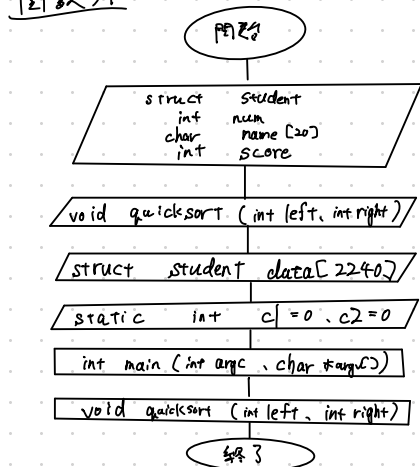 開始
struct student
int num
char name [20]
int score
void quicksort (int left、int right)
struct student data[2240]
static int c1=0、c2=0
int main (int argc、char *argv[])
void quicksort (int left、int right)
終了